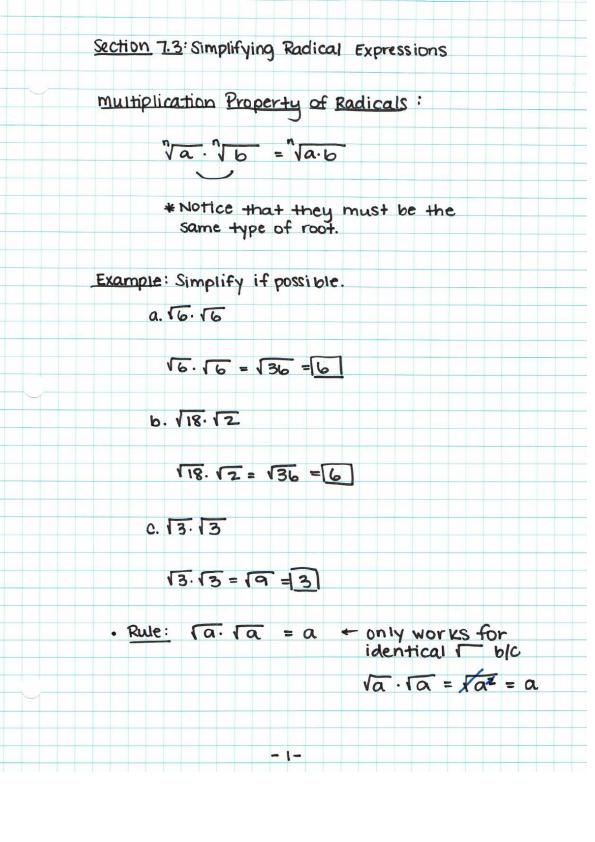 Section 7.3: Simplifying Radical Expressions
Multiplication Property of Radicals:
ⁿ√a · ⁿ√b = ⁿ√a·b
* Notice that they must be the
same type of root.
Example: Simplify if possible.
a. √6 · √6
√6 · √6 = √36 = 6
b. √18 · √2
√18 · √2 = √36 = 6
c. √3 · √3
√3 · √3 = √9 = 3
• Rule: √a · √a = a ← only works for
identical √ b/c
√a · √a = √a² = a
- 1 -